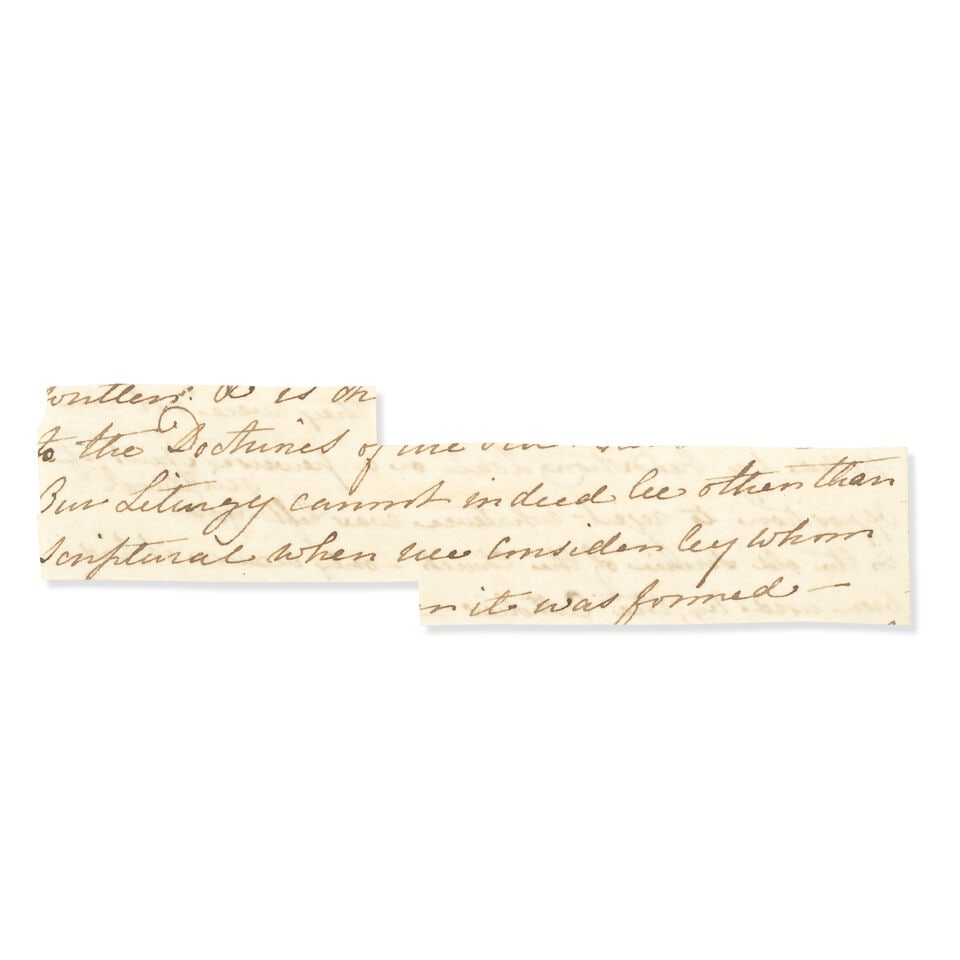 written. & is
to the Doctrines of the
Our Liturgy cannot indeed be other than
Scriptural when we consider by whom
it was formed —